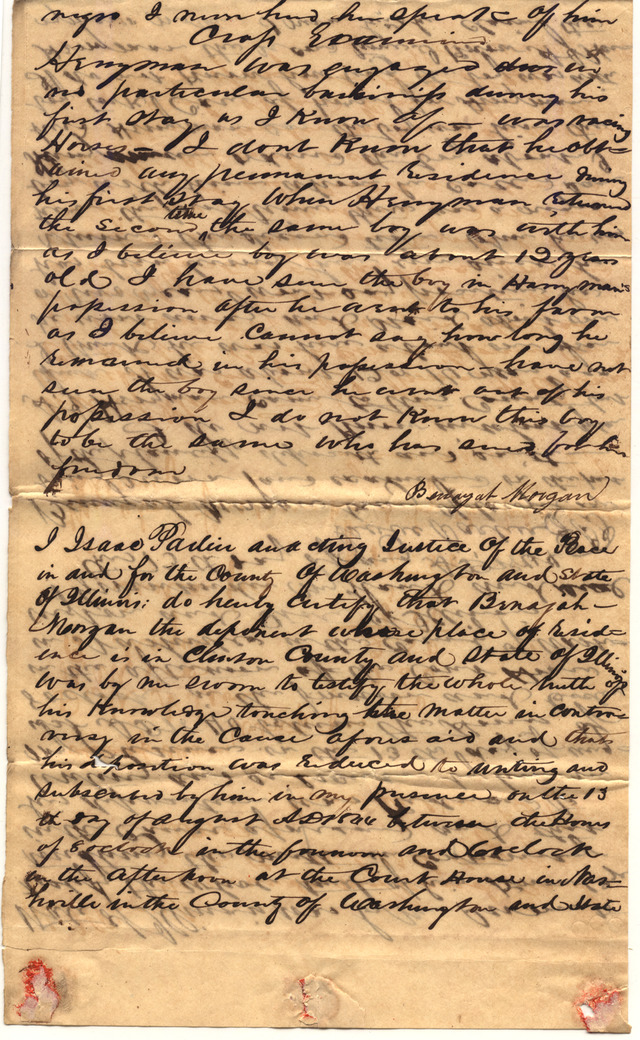 negro I never herd him speak of him
Cross Examined
Herryman was engaged due in
no particular buisiness during his
first stay as I Know of – was racing
Horses – I dont Know that he ob–
tained any permanent residence during
his first stay When Herryman returned
the second time the same boy was with him
as I believe boy was about 12 years
old I have seen the boy in Harryman's
possession after he went to his farm
as I believe cannot say how long he
remained in his possession – have not
seen the boy since he went out of his
possession I do not Know this boy
to be the same who has sued for his
freedom
Benajah Morgan
I Isaac an acting Justice of the Peace
in and for the County of Washington and State
of Illinois: do hereby certify that Benajah –
Morgan the deponent whose place of resid–
ence is in Clinton County and State of Illinois
was by me sworn to testify the whole truth of
his Knowledge touching the matter in contro–
versy in the Cause aforesaid and that
his deposition was reduced to writing and
subscribed by him in my presence on the 13
th day of August between the Hours
of 8 oclock in the forenoon and 6 oclock
in the afternoon at the Court House in Nas–
hville in the County of Washington and State